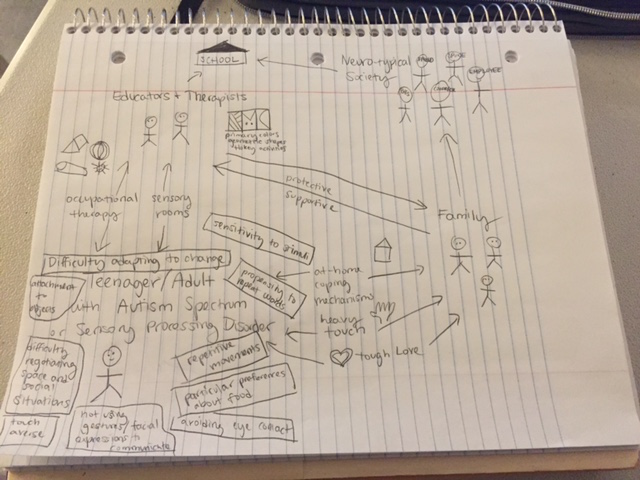 SCHOOL
Neurotypical
Society
EMPLOYEE
Educators + Therapists
primary colors
geometric shapes
protective
supportive
occupational
therapy
sensory
rooms
Family
sensitivity to stimuli
Difficulty adapting to change
attachment
to
objects
Teenager/Adult
with Autism Spectrum
or Sensory Processing Disorder
propensity to
repeat words
at-home
coping
mechanisms
heavy
touch
tough Love
repetitive
movements
difficulty
negotiating
space and
social
situations
particular preferences
about food
touch
averse
not using
gestures/facial
expressions to
communicate
avoiding eye contact